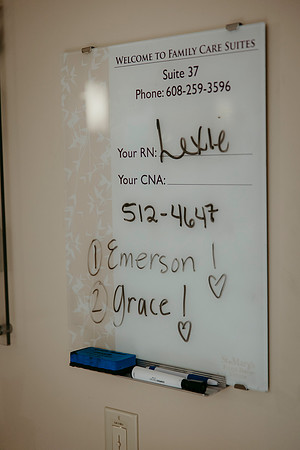 WELCOME TO FAMILY CARE SUITES
Suite 37
Phone: 608-259-3596
Your RN: Lexie
Your CNA:
512-4647
① Emerson !
② Grace !